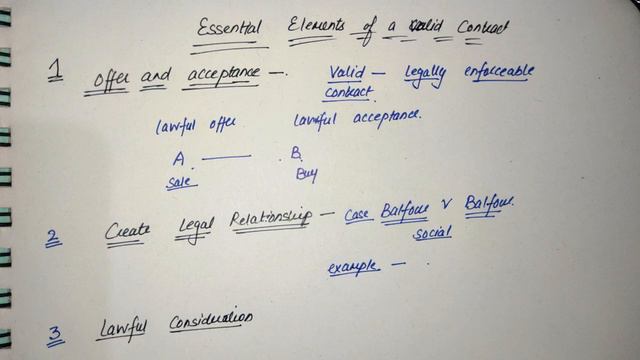 Essential Elements of a Valid Contract
1 Offer and acceptance —. Valid — legally enforceable
contract.
lawful offer lawful acceptance.
A —— . B.
sale Buy
2 Create Legal Relationship — Case Balfour v Balfour.
social
example — .
3 Lawful Consideration